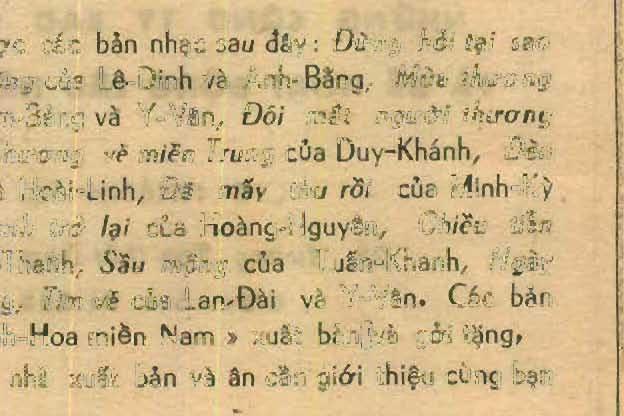 các bản nhạc sau đây: Đừng hỏi tại sao
của Lê-Dinh và Anh-Bằng, Mùa thương
và Y-Vân, Đôi mắt người thương
thương về miền Trung của Duy-Khánh, Đèn
Hoài-Linh, Đã mấy thu rồi của Minh-Kỳ
trở lại của Hoàng-Nguyên, Chiều tiễn
Thanh, Sầu mộng của Tuấn-Khanh, Ngày
Tìm về của Lan-Đài và Y-Vân. Các bản
h-Hoa miền Nam » xuất bản và gởi tặng.
nhà xuất bản và ân cần giới thiệu cùng bạn